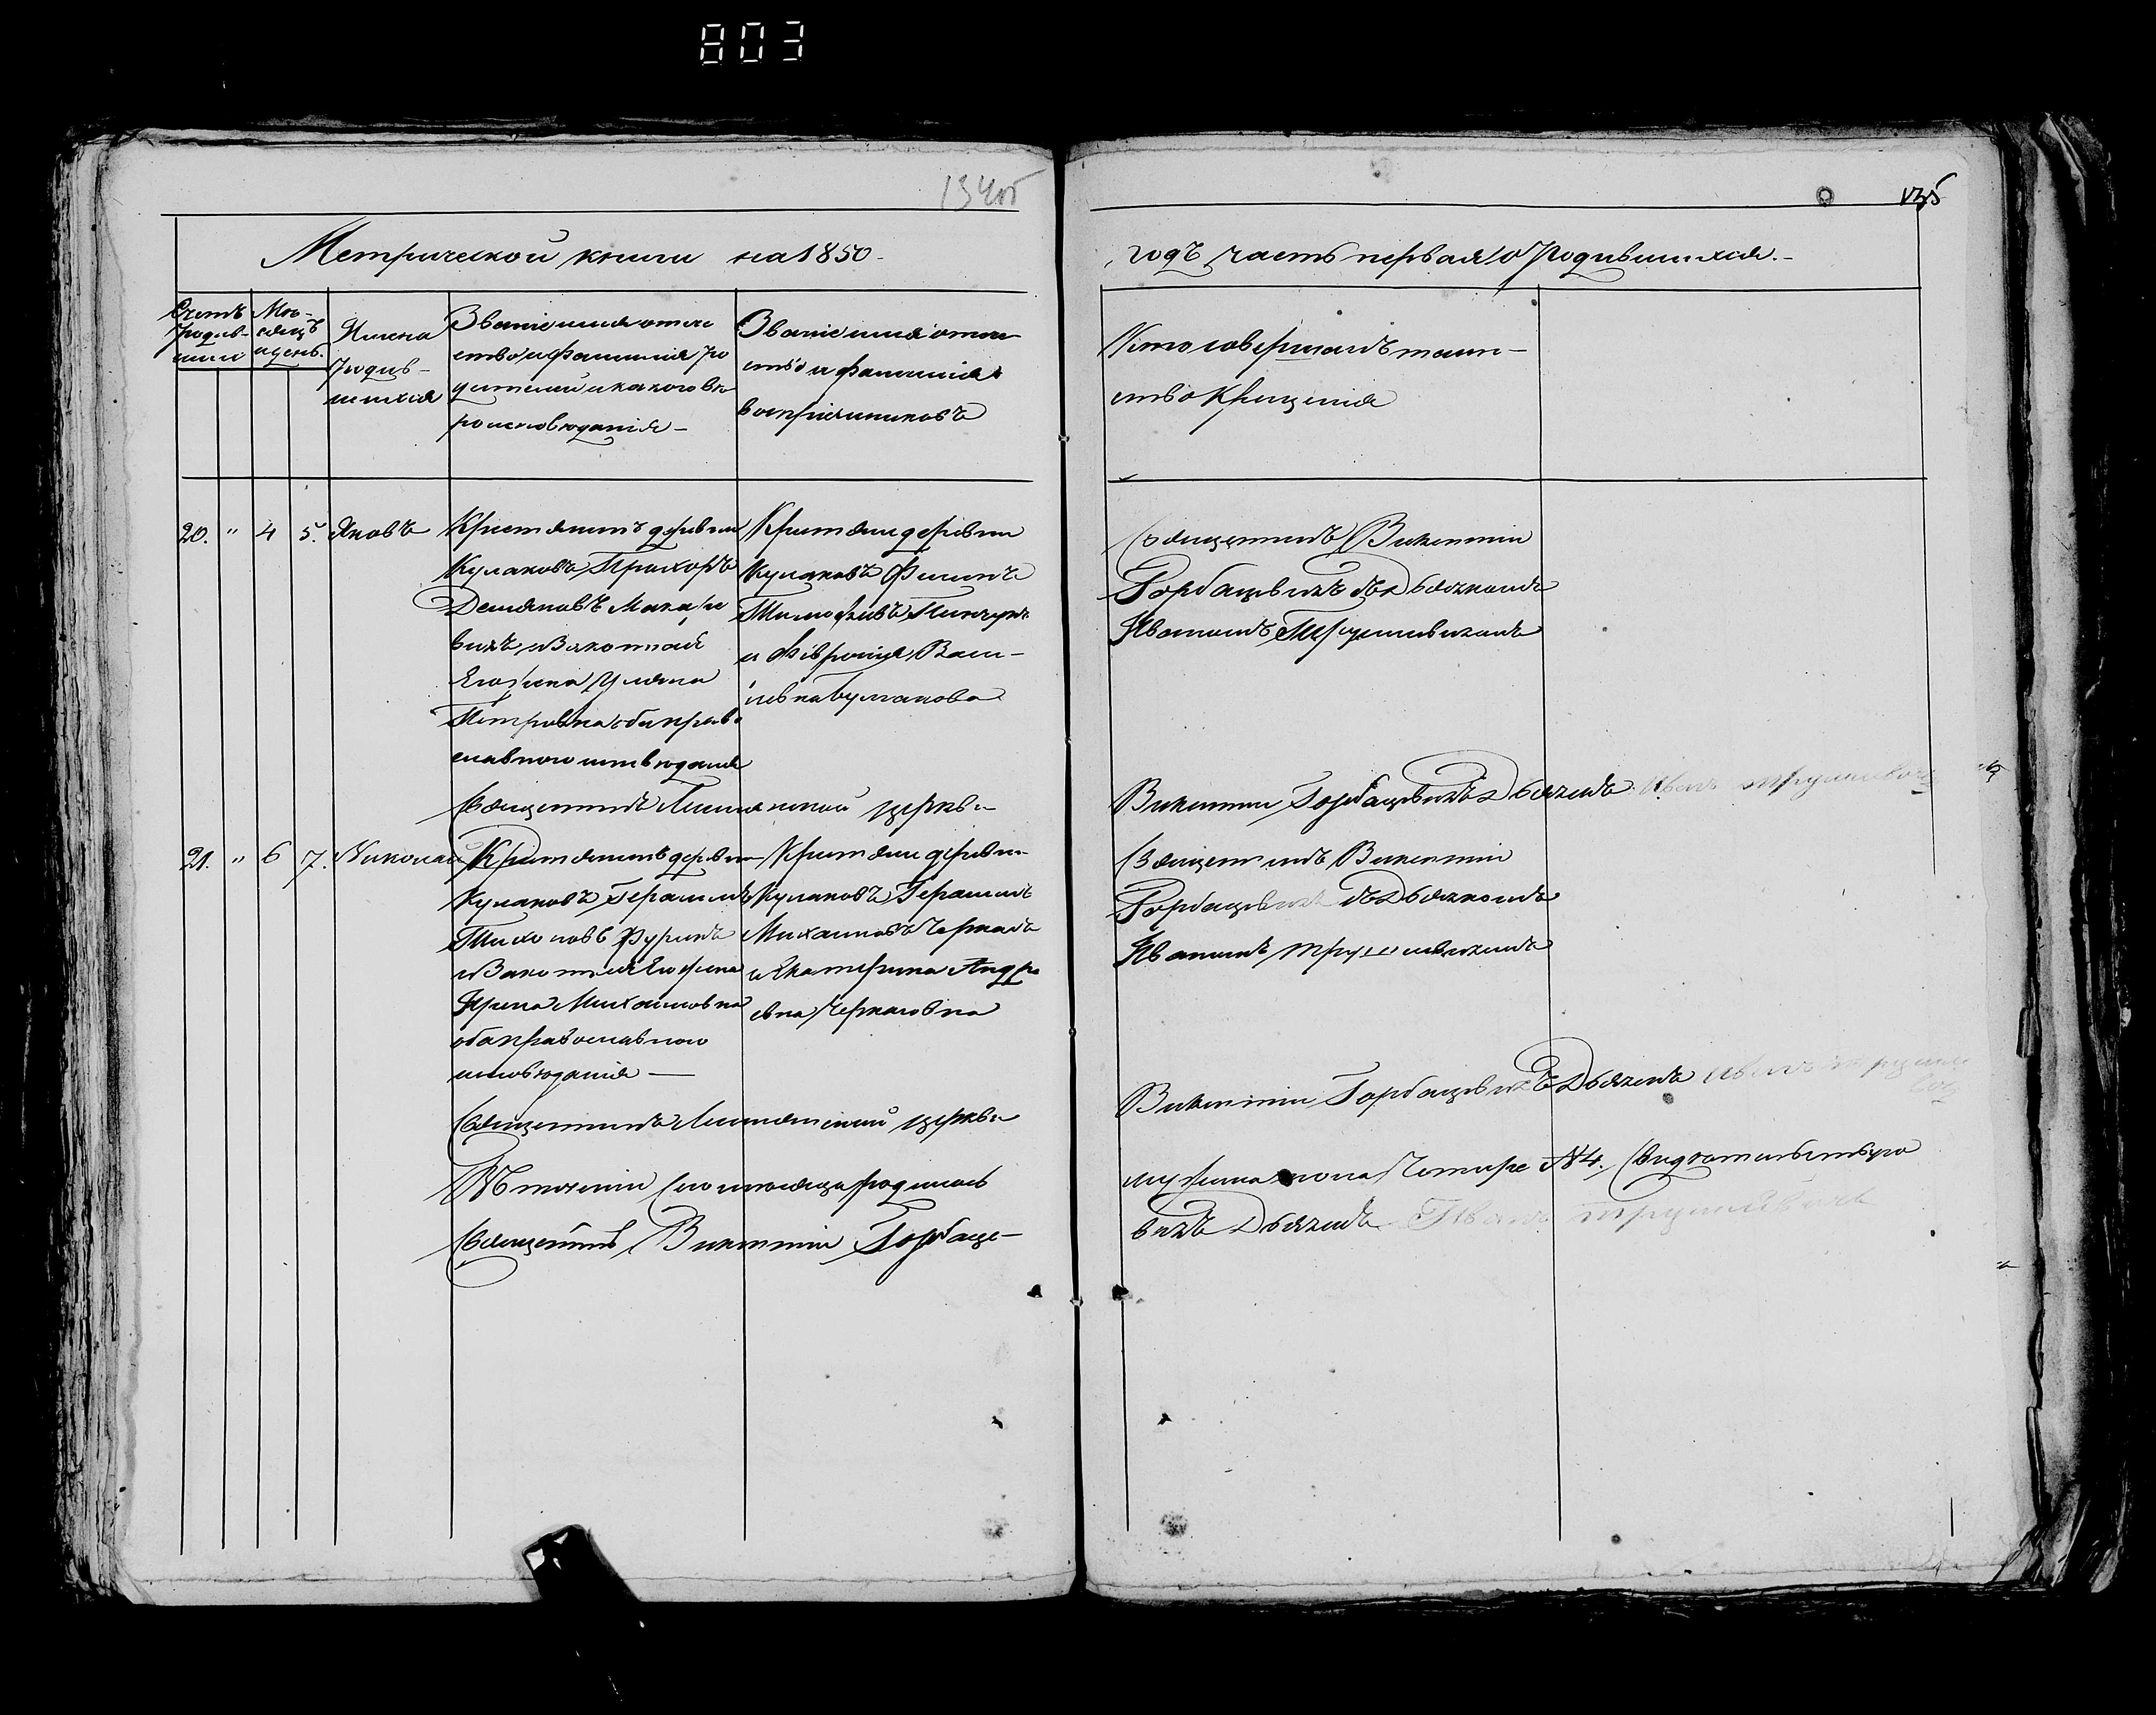 803
134об
135
Метрической книги на 1850
годъ, часть первая о родившихся.
Счетъ
родив-
шихся
Мѣ-
сяцъ
и день.
Имена
родив-
шихся
Званіе имя отче
ство и фамилія ро
дителей и какого вѣ
роисповѣданія
Званіе имя отче
ство и фамилія
воспріемниковъ
Кто совершалъ таин-
ство крещенія
20. " 4 5. Яковъ
Крестьянинъ деревни
Кулаковъ Прохоръ
Демяновъ Макаре
вичъ и законная
его жена Уляна
Петровна оба право
славного исповѣданія
Крестьяни деревни
Кулаковъ Филипъ
Тимофѣевъ
и Февронія Васи-
левна Булакова
Священникъ Викентій
Горбацевичъ съ Дьячкомъ
Иваномъ Трусевичомъ
Священникъ церкви
Викентій Горбацевичъ Дьячекъ Иванъ
21. " 6 7. Николай
Крестьянинъ деревни
Кулаковъ Герасимъ
Тихоновъ
и законная его жена
Ирина Михайловна
оба православного
исповѣданія
Крестьяни деревни
Кулаковъ Герасимъ
Михайловъ
и Екатерина Андре
евна
Священникъ Викентій
Горбацевичъ съ Дьячкомъ
Иваномъ
Священникъ церкви
Викентій Горбацевичъ Дьячекъ Иванъ
Въ теченіи сего мѣсяца родилось
мужеска пола Четыре №4. Свидѣтельствую
Священникъ Викентій Горбаце-
вичъ Дьячекъ Иванъ